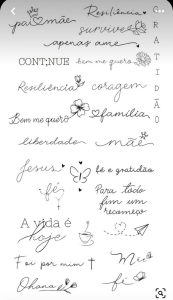 pai mãe
Resiliência
survive
apenas ame
GRATIDÃO
CONT;NUE
bem me quero
Resiliência
coragem
Bem me quero
família
liberdade
mãe
Jesus
fé e gratidão
fé
Para todo
fim um
recomeço
A vida é
hoje
Foi por mim
Ohana
fé